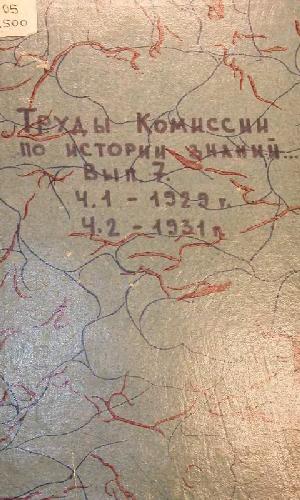 05
500
Труды Комиссии
по истории знаний...
Вып 7.
Ч.1 - 1929 г.
Ч.2 - 1931 г.